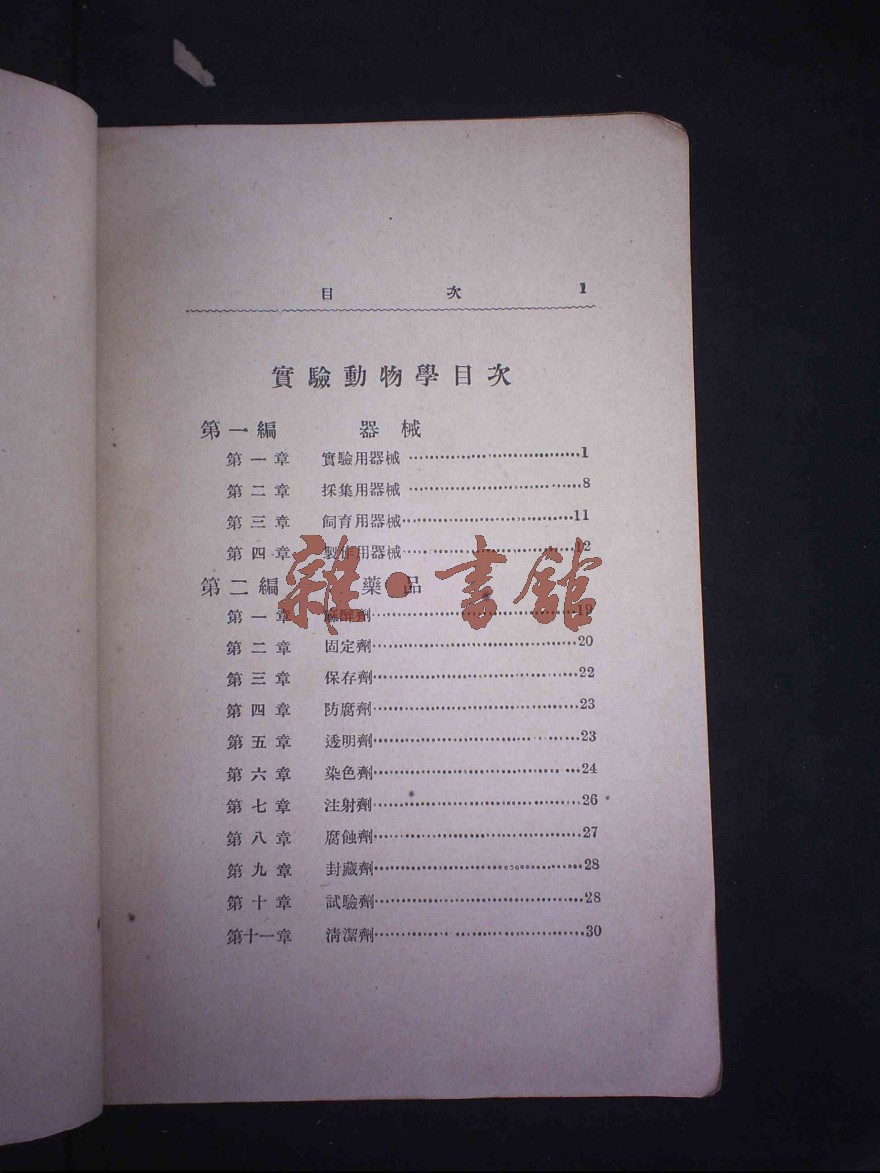 目 次 1
實驗動物學目次
第一編 器械
第一章 實驗用器械 1
第二章 採集用器械 8
第三章 飼育用器械 11
第四章 製作用器械 12
第二編 藥品
第一章 麻醉劑 19
第二章 固定劑 20
第三章 保存劑 22
第四章 防腐劑 23
第五章 透明劑 23
第六章 染色劑 24
第七章 注射劑 26
第八章 腐蝕劑 27
第九章 封藏劑 28
第十章 試驗劑 28
第十一章 淸潔劑 30
雜·書館